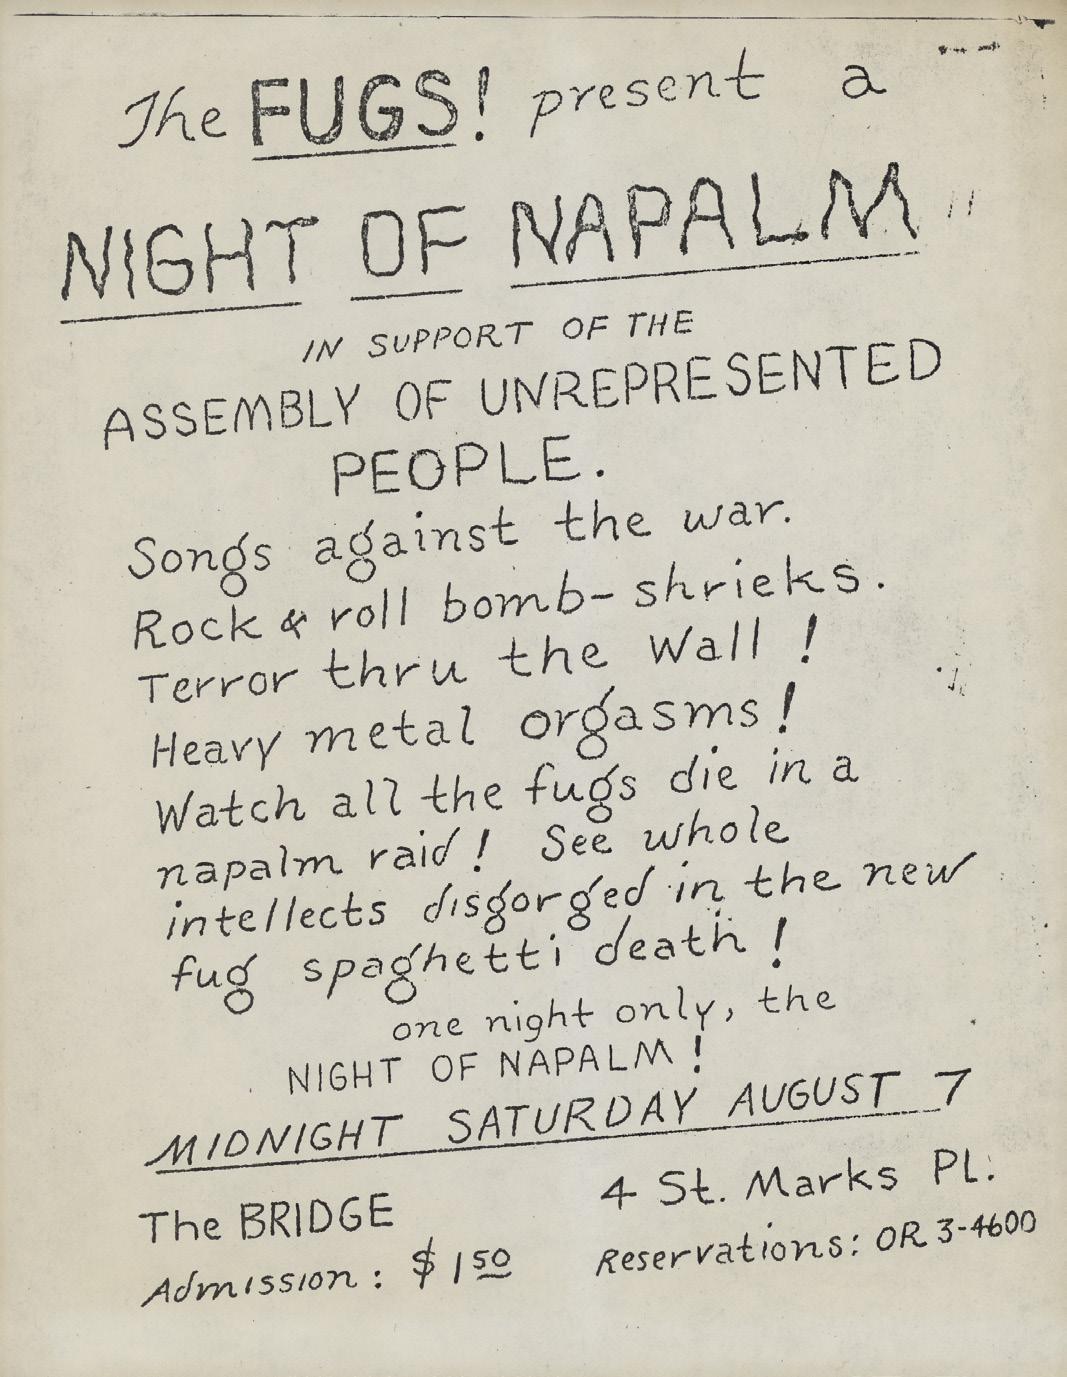 The FUGS! present a
NIGHT OF NAPALM
IN SUPPORT OF THE
ASSEMBLY OF UNREPRESENTED
PEOPLE.
Songs against the war.
Rock & roll bomb-shrieks.
Terror thru the Wall!
Heavy metal orgasms!
Watch all the fugs die in a
napalm raid! See whole
intellects disgorged in the new
fug spaghetti death!
one night only, the
NIGHT OF NAPALM!
MIDNIGHT SATURDAY AUGUST 7
The BRIDGE 4 St. Marks PL.
Admission: $1.50 Reservations: OR 3-4600